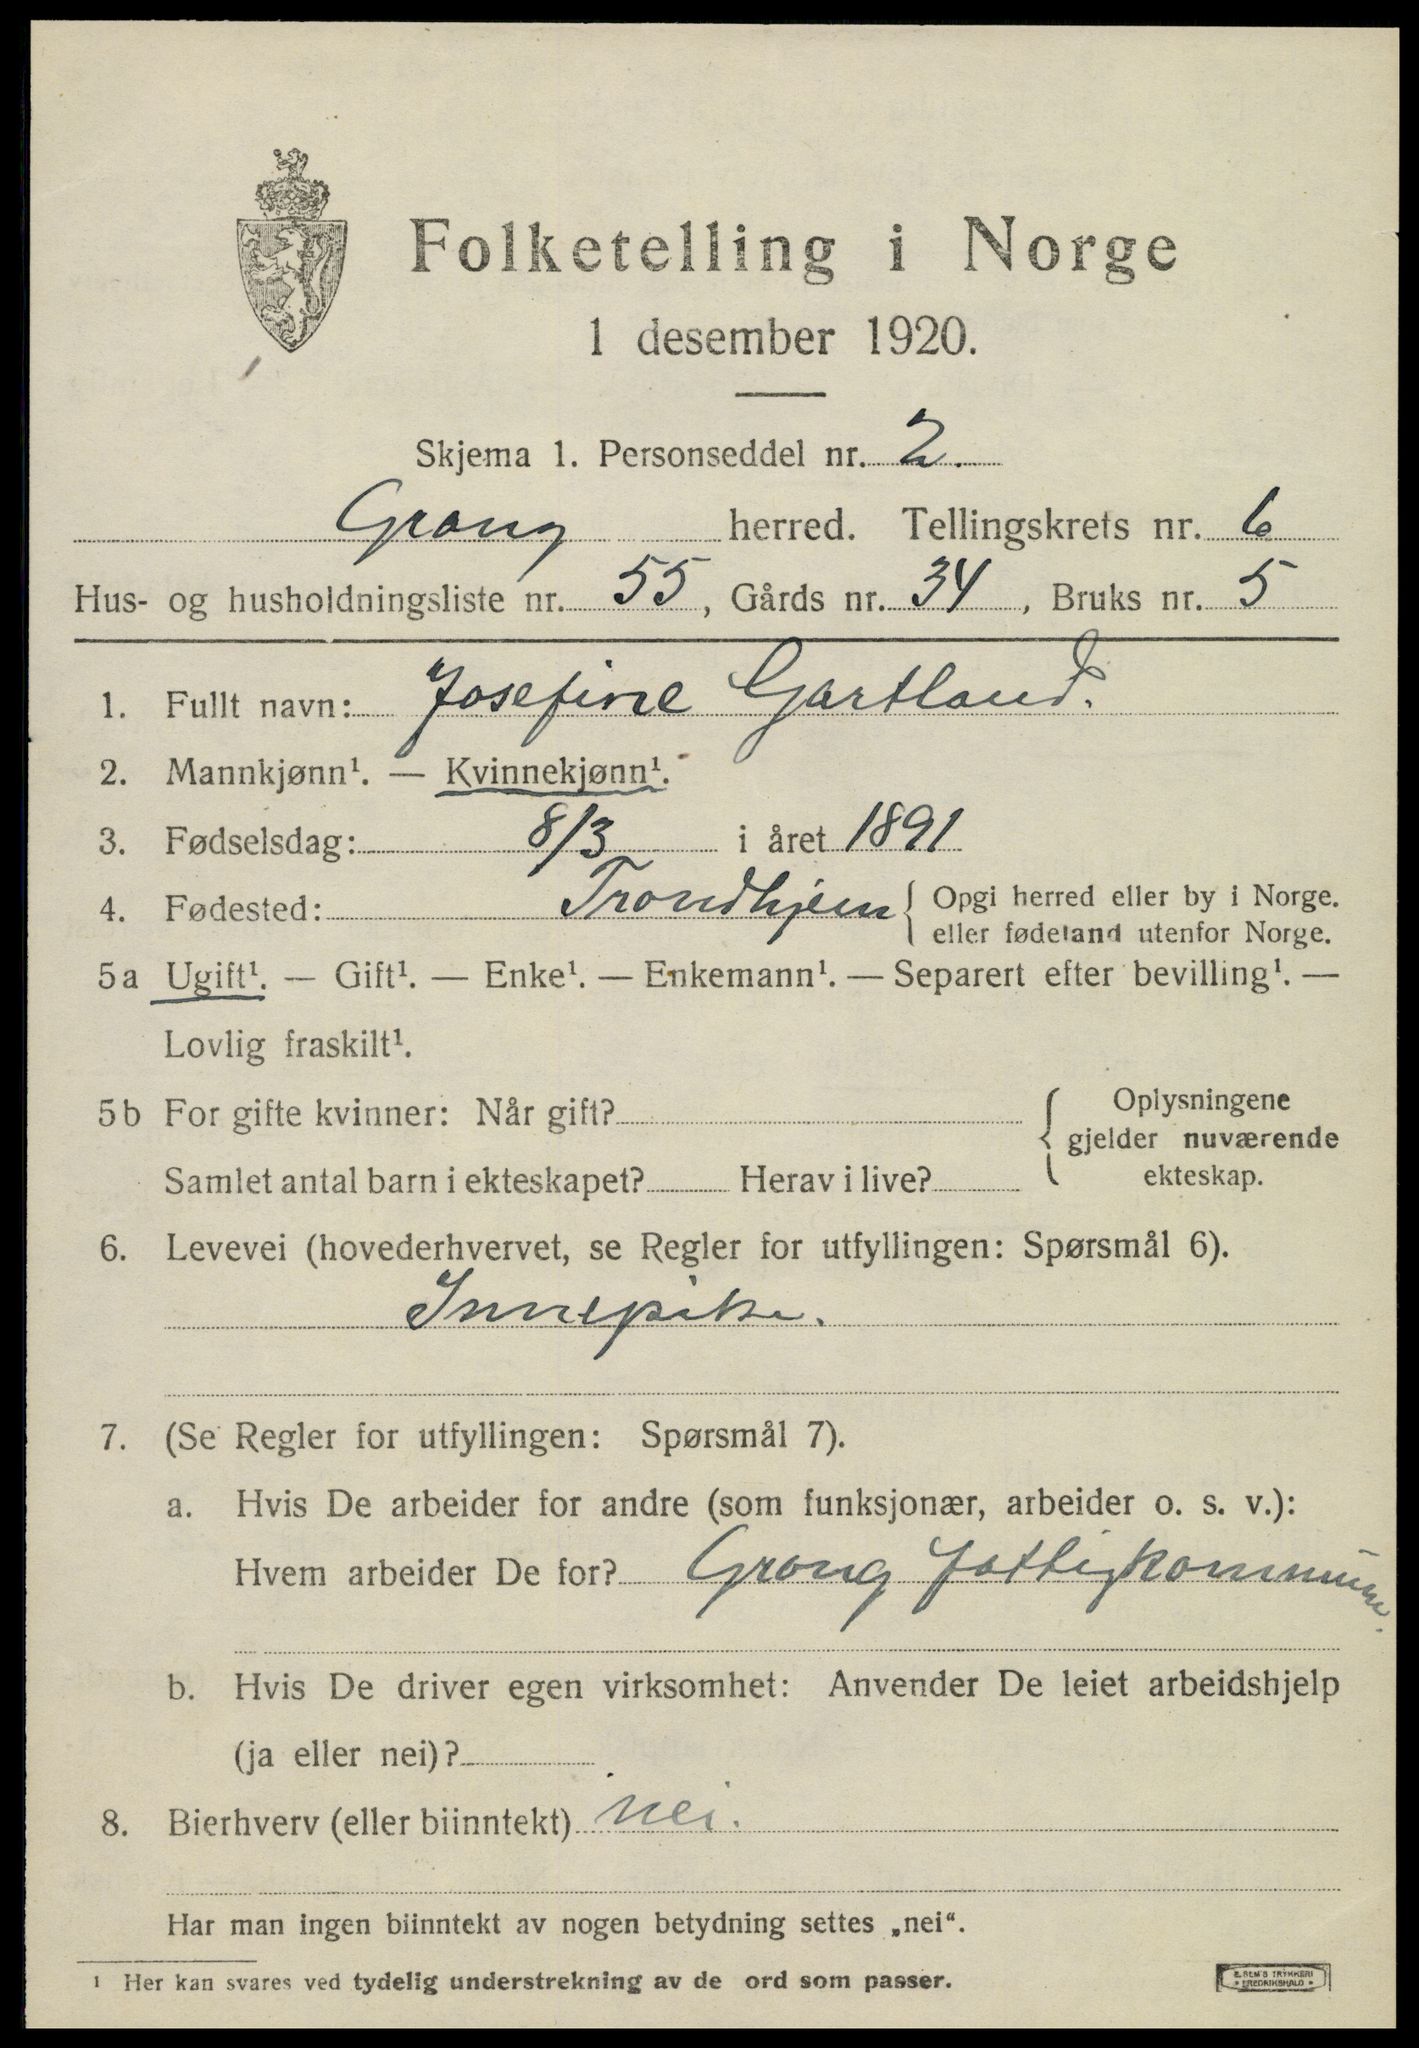 Folketelling i Norge
1 desember 1920.
Skjema 1. Personseddel nr. 2.
Grong herred. Tellingskrets nr. 6
Hus- og husholdningsliste nr. 55, Gårds nr. 34, Bruks nr. 5
1. Fullt navn: Josefine Gartland.
2. Mannkjønn¹. — Kvinnekjønn¹.
3. Fødselsdag: 8/3 i året 1891
4. Fødested: Trondhjem { Opgi herred eller by i Norge.
eller fødeland utenfor Norge.
5a Ugift¹. — Gift¹. — Enke¹. — Enkemann¹. — Separert efter bevilling¹. —
Lovlig fraskilt¹.
5b For gifte kvinner: Når gift? { Oplysningene
gjelder nuværende
Samlet antal barn i ekteskapet? Herav i live? ekteskap.
6. Levevei (hovederhvervet, se Regler for utfyllingen: Spørsmål 6).
Innepike.
7. (Se Regler for utfyllingen: Spørsmål 7).
a. Hvis De arbeider for andre (som funksjonær, arbeider o. s. v.):
Hvem arbeider De for? Grong fattigkommune.
b. Hvis De driver egen virksomhet: Anvender De leiet arbeidshjelp
(ja eller nei)?
8. Bierhverv (eller biinntekt) nei.
Har man ingen biinntekt av nogen betydning settes „nei“.
¹ Her kan svares ved tydelig understrekning av de ord som passer.
E. SEM'S TRYKKERI
• FREDRIKSHALD •